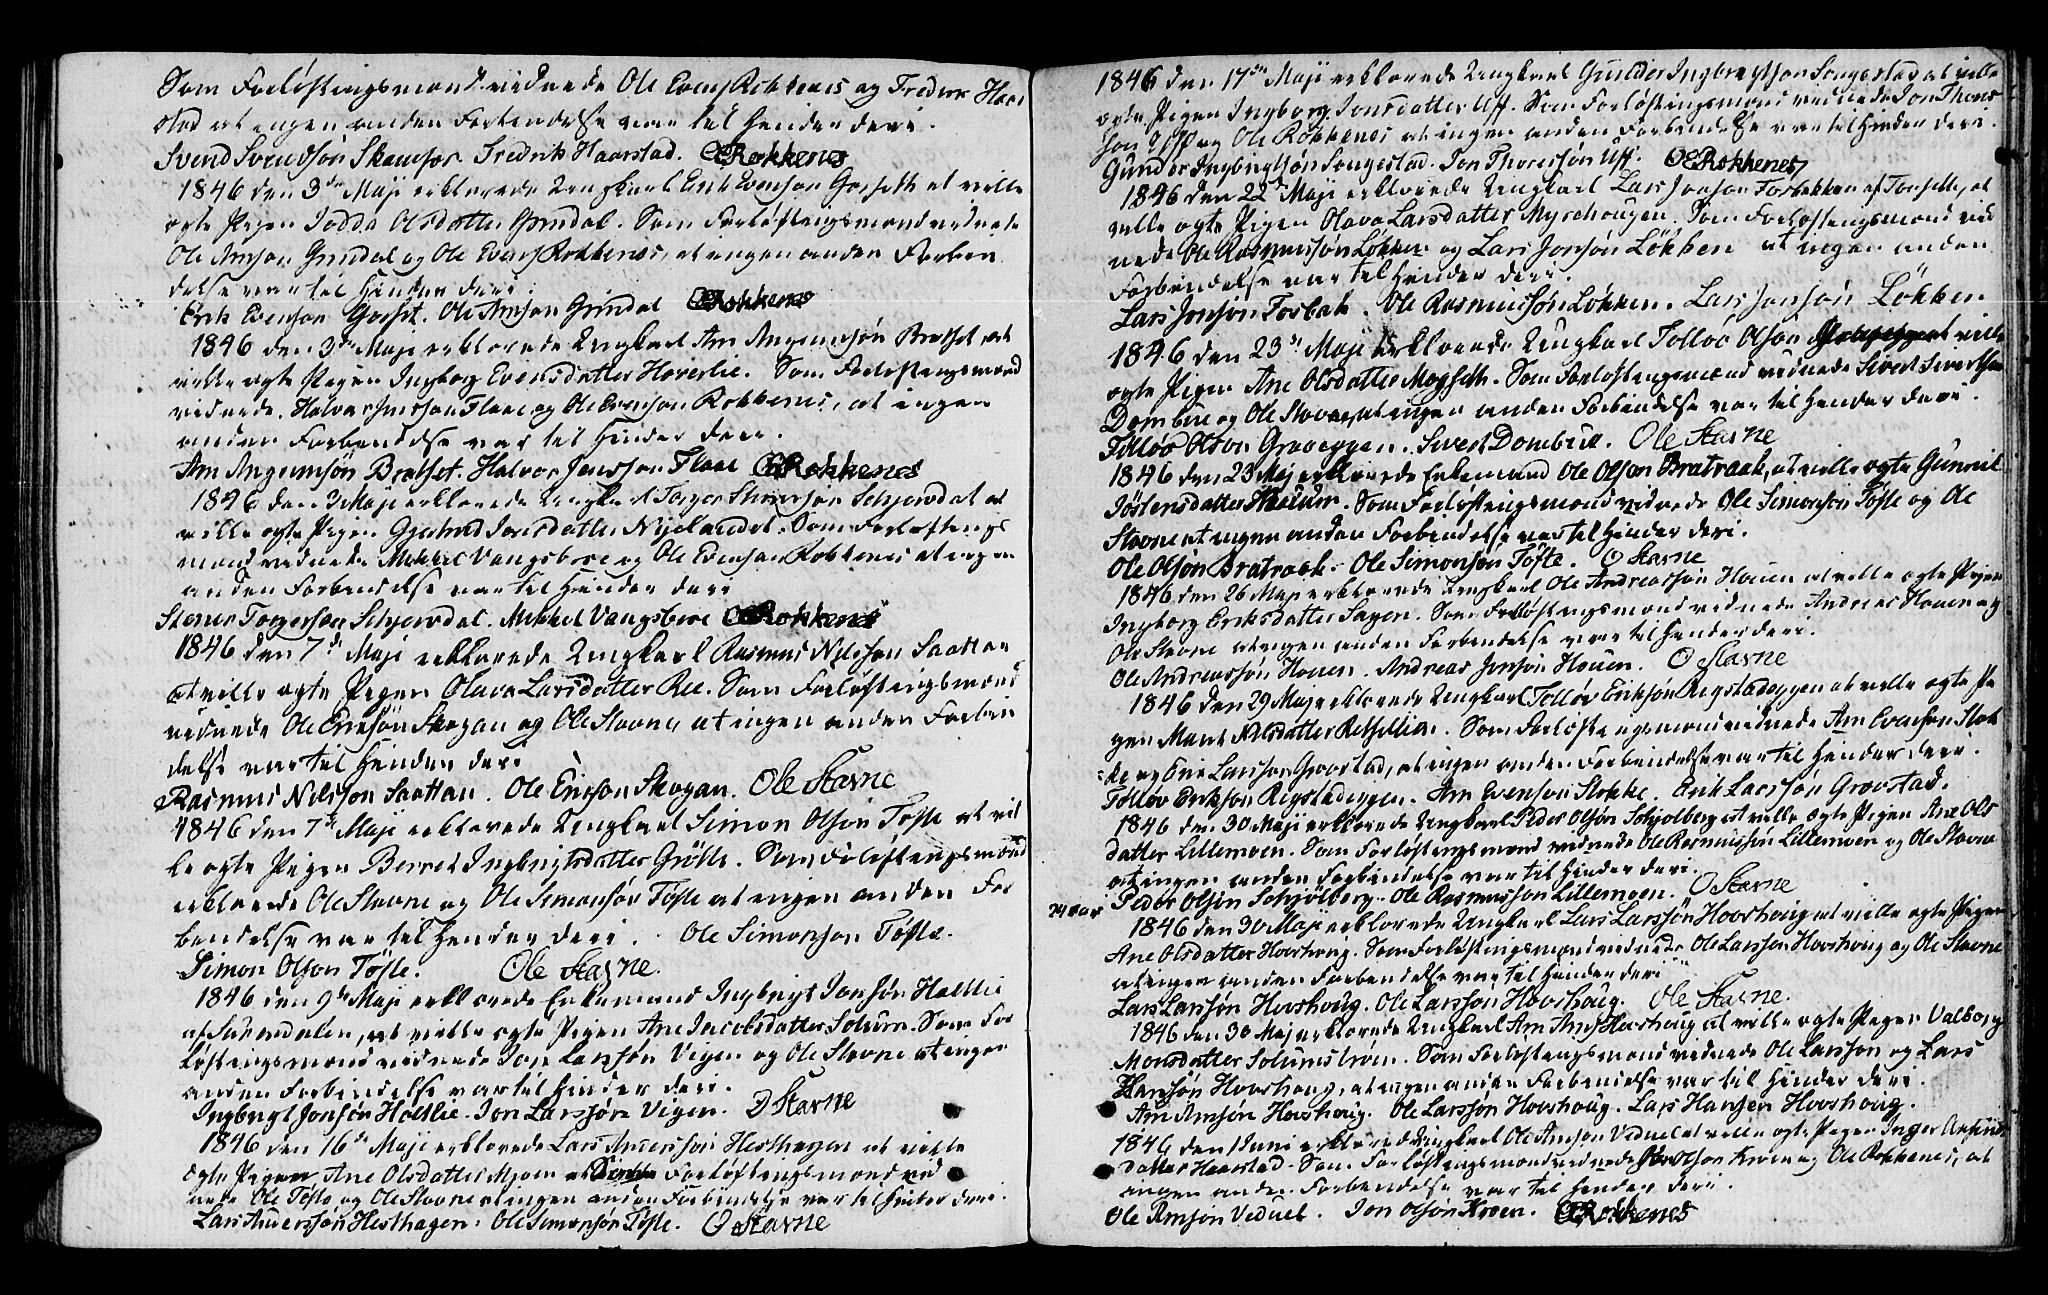 Som Forløftingsmend vidnede Ole Evens Rokkenes og Fredrik Haar
stad at ingen anden Forbindelse var til Hinder deri.
Svend Svendsön Skamfer. Fredrik Haarstad. OERokkenes
1846 den 3de Maji erklærede Ungkarl Erik Evenson Gorset at ville
ægte Pigen Jodda Olsdatter Grindal. Som Forløftingsmend vidnede
Ole Arnson Grindal og Ole Evens Rokkenes, at ingen anden Forbin
delse var til Hinder deri.
Erik Evenson Gorset. Ole Arnson Grindal OERokkenes
1846 den 3de Maji erklærede Ungkarl Arn Arnson Bratset, at
ville ægte Pigen Ingborg Evensdatter Haverlie. Som Forløftingsmend
vidnede Halvor Jensson Flaae og Ole Evenson Rokkenes, at ingen
anden Forbindelse var til Hinder deri.
Bratset. Halvor Jensson Flaae OERokkenes
1846 den 3 Maji erklærede Ungkarl Schjerdal at
ville ægte Pigen Gjertrud Jonsdatter Nyelandet. Som Forløftings
mend vidnede Mekkel Vangsbore og Ole Evenson Rokkenes at ingen
anden Forbindelse var til Hinder deri
Stener Torgerson Schjerdal. Mekkel Vangsbore OERokkenes
1846 den 7de Maji erklærede Ungkarl Rasmus Nilsson Saattan
at ville ægte Pigen Olava Larsdatter Ree. Som Forløftingsmend
vidnede Ole Erikson Skogan og Ole Stavne, at ingen anden Forbin
delse var til Hinder deri
Rasmus Nilsson Saattan. Ole Ericson Skogan. Ole Stavne
1846 den 7de Maji erklærede Ungkarl Simon Olson Töfte at vil
le ægte Pigen Berret Ingbrigtsdatter Gröfte. Som Forløftingsmend
erklærede Ole Stavne og Ole Simonsön Töfte at ingen anden For
bendelse var til Hinder deri. Ole Simonson Töfte.
Simon Olson Töfte. Ole Stavne.
1846 den 9de Maji erklærede Enkemand Ingbrigt Jonsön Holtlie
af Surendalen, at ville ægte Pigen Ane Jacobsdatter Solum. Som For
løftingsmend vidnede Jon Larssön Vigen og Ole Stavne at ingen
anden Forbindelse var til Hinder deri.
Ingbrigt Jonsön Holtlie. Jon Larssön Vigen. O Stavne
1846 den 16de Maji erklærede Lars Anderssön Hesthagen at ville
ægte Pigen Ane Olsdatter Mjoen. Forløftingsmend vid
nede Ole Töfte og Ole Stavne at ingen anden Forbindelse var til Hinder deri.
Lars Anderssön Hesthagen. Ole Simonsön Töfte. O Stavne
1846 den 17de Maji erklærede Ungkarl Gunder Ingbrigtson Songestad at ville
ægte Pigen Ingborg Jonsdatter Uff. Som Forløftingsmend vidnede Jon Thores
son Uff og Ole Rokkenes at ingen anden Forbindelse var til Hinder deri.
Gunder Ingbrigtson Songestad. Jon Thoressön Uff. OERokkenes
1846 den 22de Maji erklærede Ungkarl Lars Jonson Forbekken af Tonsette, at
ville ægte Pigen Olava Larsdatter Myrehougen. Som Forløftingsmend vid
nede Ole Rasmussön Løkken og Lars Jonsön Løkken at ingen anden
Forbindelse var til Hinder deri.
Lars Jonson Forbak. Ole Rasmussön Løkken. Lars Jonson Løkken
1846 den 23de Maji erklærede Ungkarl Tolløv Olson at ville
ægte Pigen Ane Olsdatter Mogseth. Som Forløftingsmend vidnede Sivert Sivertson
Dombue og Ole Stavne, at ingen anden Forbindelse var til Hinder deri.
Tolløv Olson Graveggen. Sivert Dombue. Ole Stavne
1846 den 23 Maj erklærede Enkemand Ole Olson Bratraak, at ville ægte Gunnil
Jöstensdatter. Som Forløftingsmend vidnede Ole Simonson Töfte og Ole
Stavne at ingen anden Forbindelse var til Hinder deri.
Ole Olson Bratraak. Ole Simonson Töfte. O Stavne
1846 den 26 Maji erklærede Ungkarl Ole Andreassön Houen at ville ægte Pigen
Ingborg Eriksdatter Sagen. Som Forløftingsmend vidnede Andreas Houen og
Ole Stavne at ingen anden Forbindelse var til Hinder deri.
Ole Andreassön Houen. Andreas Jonsön Houen. O Stavne
1846 den 29 Maji erklærede Ungkarl Tolløv Erikson Regstadeggen at ville ægte Pi
gen Marit Nilsdatter. Som Forløftingsmend vidnede Arn Evenson Stok
ke og Erik Larsson Grovstad, at ingen anden Forbindelse var til Hinder deri.
Tolløv Erikson Regstadeggen. Arn Evenson Stokke. Erik Larsson Grovstad.
1846 den 30 Maji erklærede Ungkarl Peder Olsön Schjolberg at ville ægte Pigen Ane Ols
datter Lillemoen. Som Forløftingsmend vidnede Ole Rasmussön Lillemoen og Ole Stavne
at ingen anden Forbindelse var til Hinder deri.
Peder Olsön Schjölberg. Ole Rasmusson Lillemoen. O Stavne
1846 den 30 Maji erklærede Ungkarl Lars Larssön Hovshoug at ville ægte Pigen
Ane Olsdatter Hovshoug. Som Forløftingsmend vidnede Ole Larsson Hovshoug og Ole Stavne
at ingen anden Forbindelse var til Hinder deri
Lars Larssön Hovshoug. Ole Larsson Hovshoug. Ole Stavne.
1846 den 30 Maj erklærede Ungkarl Arn Arns Hovshoug at ville ægte Pigen Valborg
Monsdatter Solumsmoen. Som Forløftingsmend vidnede Ole Larsson og Lars
Hansön Hovshoug, at ingen anden Forbindelse var til Hinder deri.
Arn Arnsön Hovshoug. Ole Larssön Hovshoug. Lars Hansen Hovshoug.
1846 den 1 Juni erklærede Ungkarl Ole Arnson Veduel at ville ægte Pigen Inger Arnfind
datter Haarstad. Som Forløftingsmend vidnede Jon Olson Kroen og Ole Rokkenes, at
ingen anden Forbendelse var til Hinder deri.
Ole Arnsön Veduel. Jon Olsön Kroen. OERokkenes